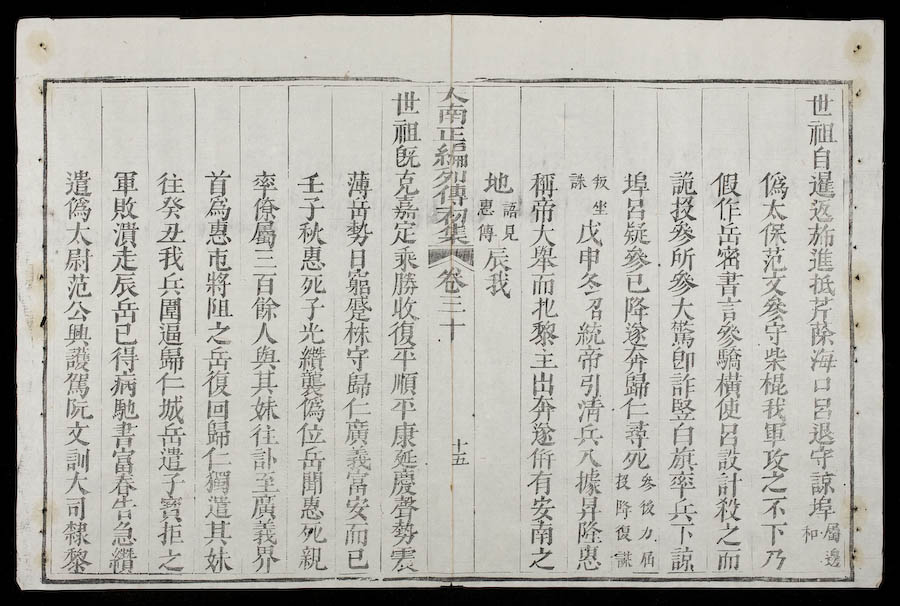 世祖自暹返旆進抵芹蒢海口呂退守諒埠屬邊和
偽太保范文參守柴棍我軍攻之不下乃
假作岳密書言參驕橫使呂設計殺之而
詭投參所參大驚即詐竪白旗率兵下諒
埠呂疑參已降遂奔歸仁尋死參後力屈投降復謀
叛坐誅戊申冬召統帝引清兵入據昇隆惠
稱帝大舉而北黎主出奔遂併有安南之
地語見惠傳辰我
大南正編列傳初集 卷三十 十五
世祖既克嘉定乘勝收復平順平康延慶聲勢震
薄岳勢日窮蹙株守歸仁廣義富安而已
壬子秋惠死子光纘襲偽位岳聞惠死親
率僚屬三百餘人與其妹往訃至廣義界
首為惠屯將阻之岳復回歸仁獨遣其妹
往癸丑我兵圍逼歸仁城岳遣子寶拒之
軍敗潰走辰岳已得病馳書富春告急纘
遣偽太尉范公興護駕阮文訓大司隸黎